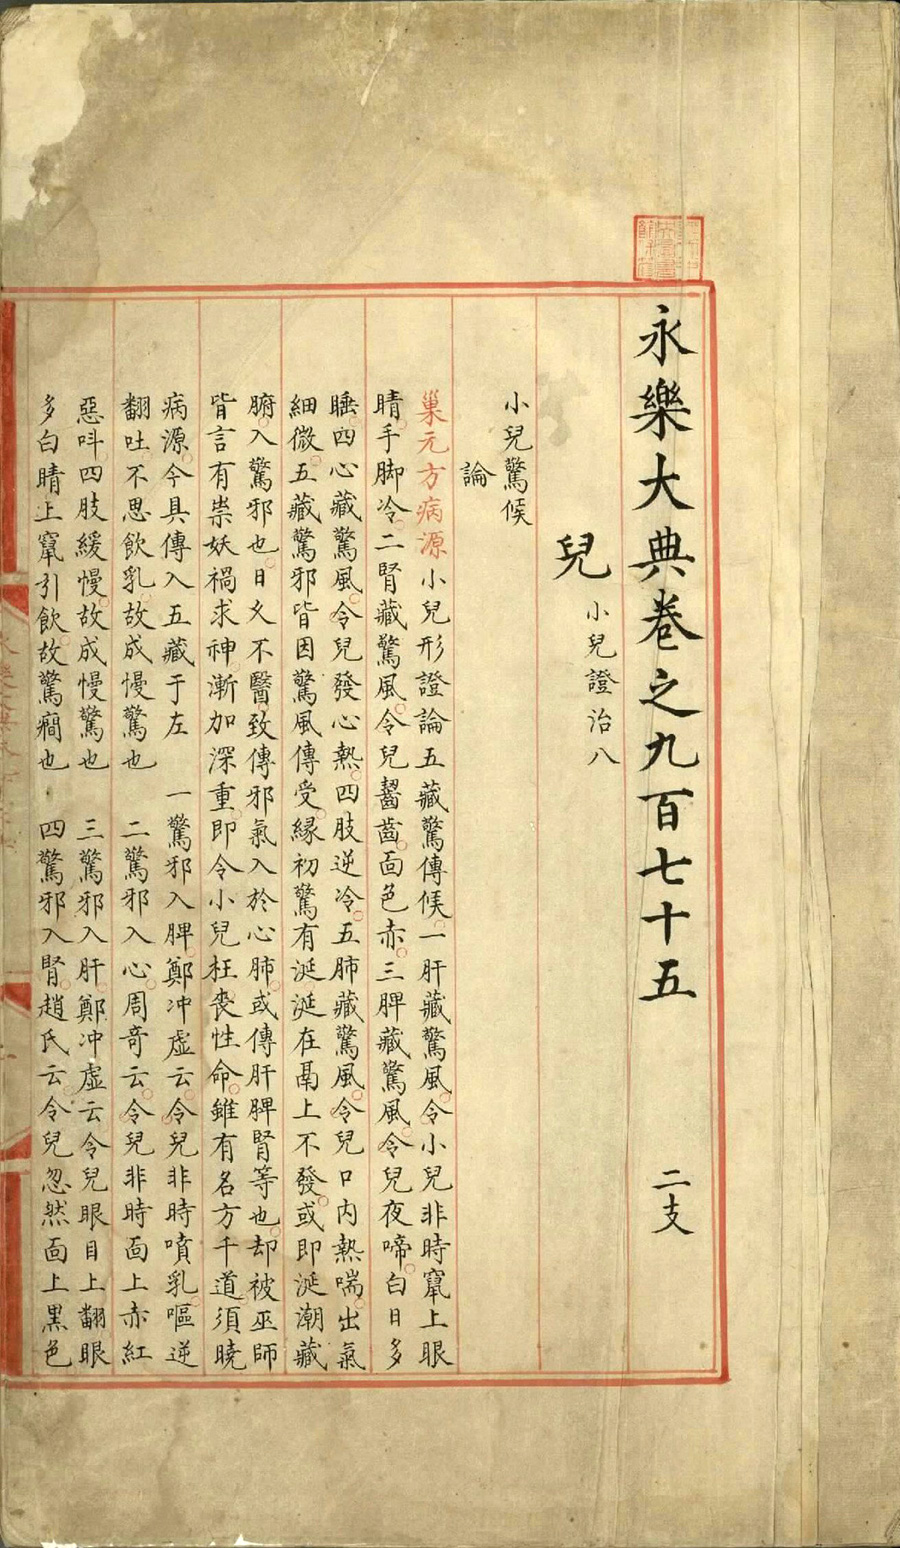 永樂大典卷之九百七十五 二支
兒 小兒證治八
小兒驚候
論
巢元方病源小兒形證論五藏驚傳候一肝藏驚風令小兒非時竄上眼
睛手脚冷二腎藏驚風令兒齧齒面色赤三脾藏驚風令兒夜啼白日多
睡四心藏驚風令兒發心熱四肢逆冷五肺藏驚風令兒口内熱喘出氣
細微五藏驚邪皆因驚風傳受縁初驚有涎涎在鬲上不發或即涎潮藏
腑入驚邪也日久不醫致傳邪氣入於心肺或傳肝脾腎等也却被巫師
皆言有祟妖禍求神漸加深重即令小兒枉喪性命雖有名方千道須曉
病源今具傳入五藏于左 一驚邪入脾鄭冲虛云令兒非時噴乳嘔逆
翻吐不思飲乳故成慢驚也 二驚邪入心周竒云令兒非時面上赤紅
惡呌四肢緩慢故成慢驚也 三驚邪入肝鄭冲虛云令兒眼目上翻眼
多白睛上竄引飲故驚癎也 四驚邪入腎趙氏云令兒忽然面上黒色